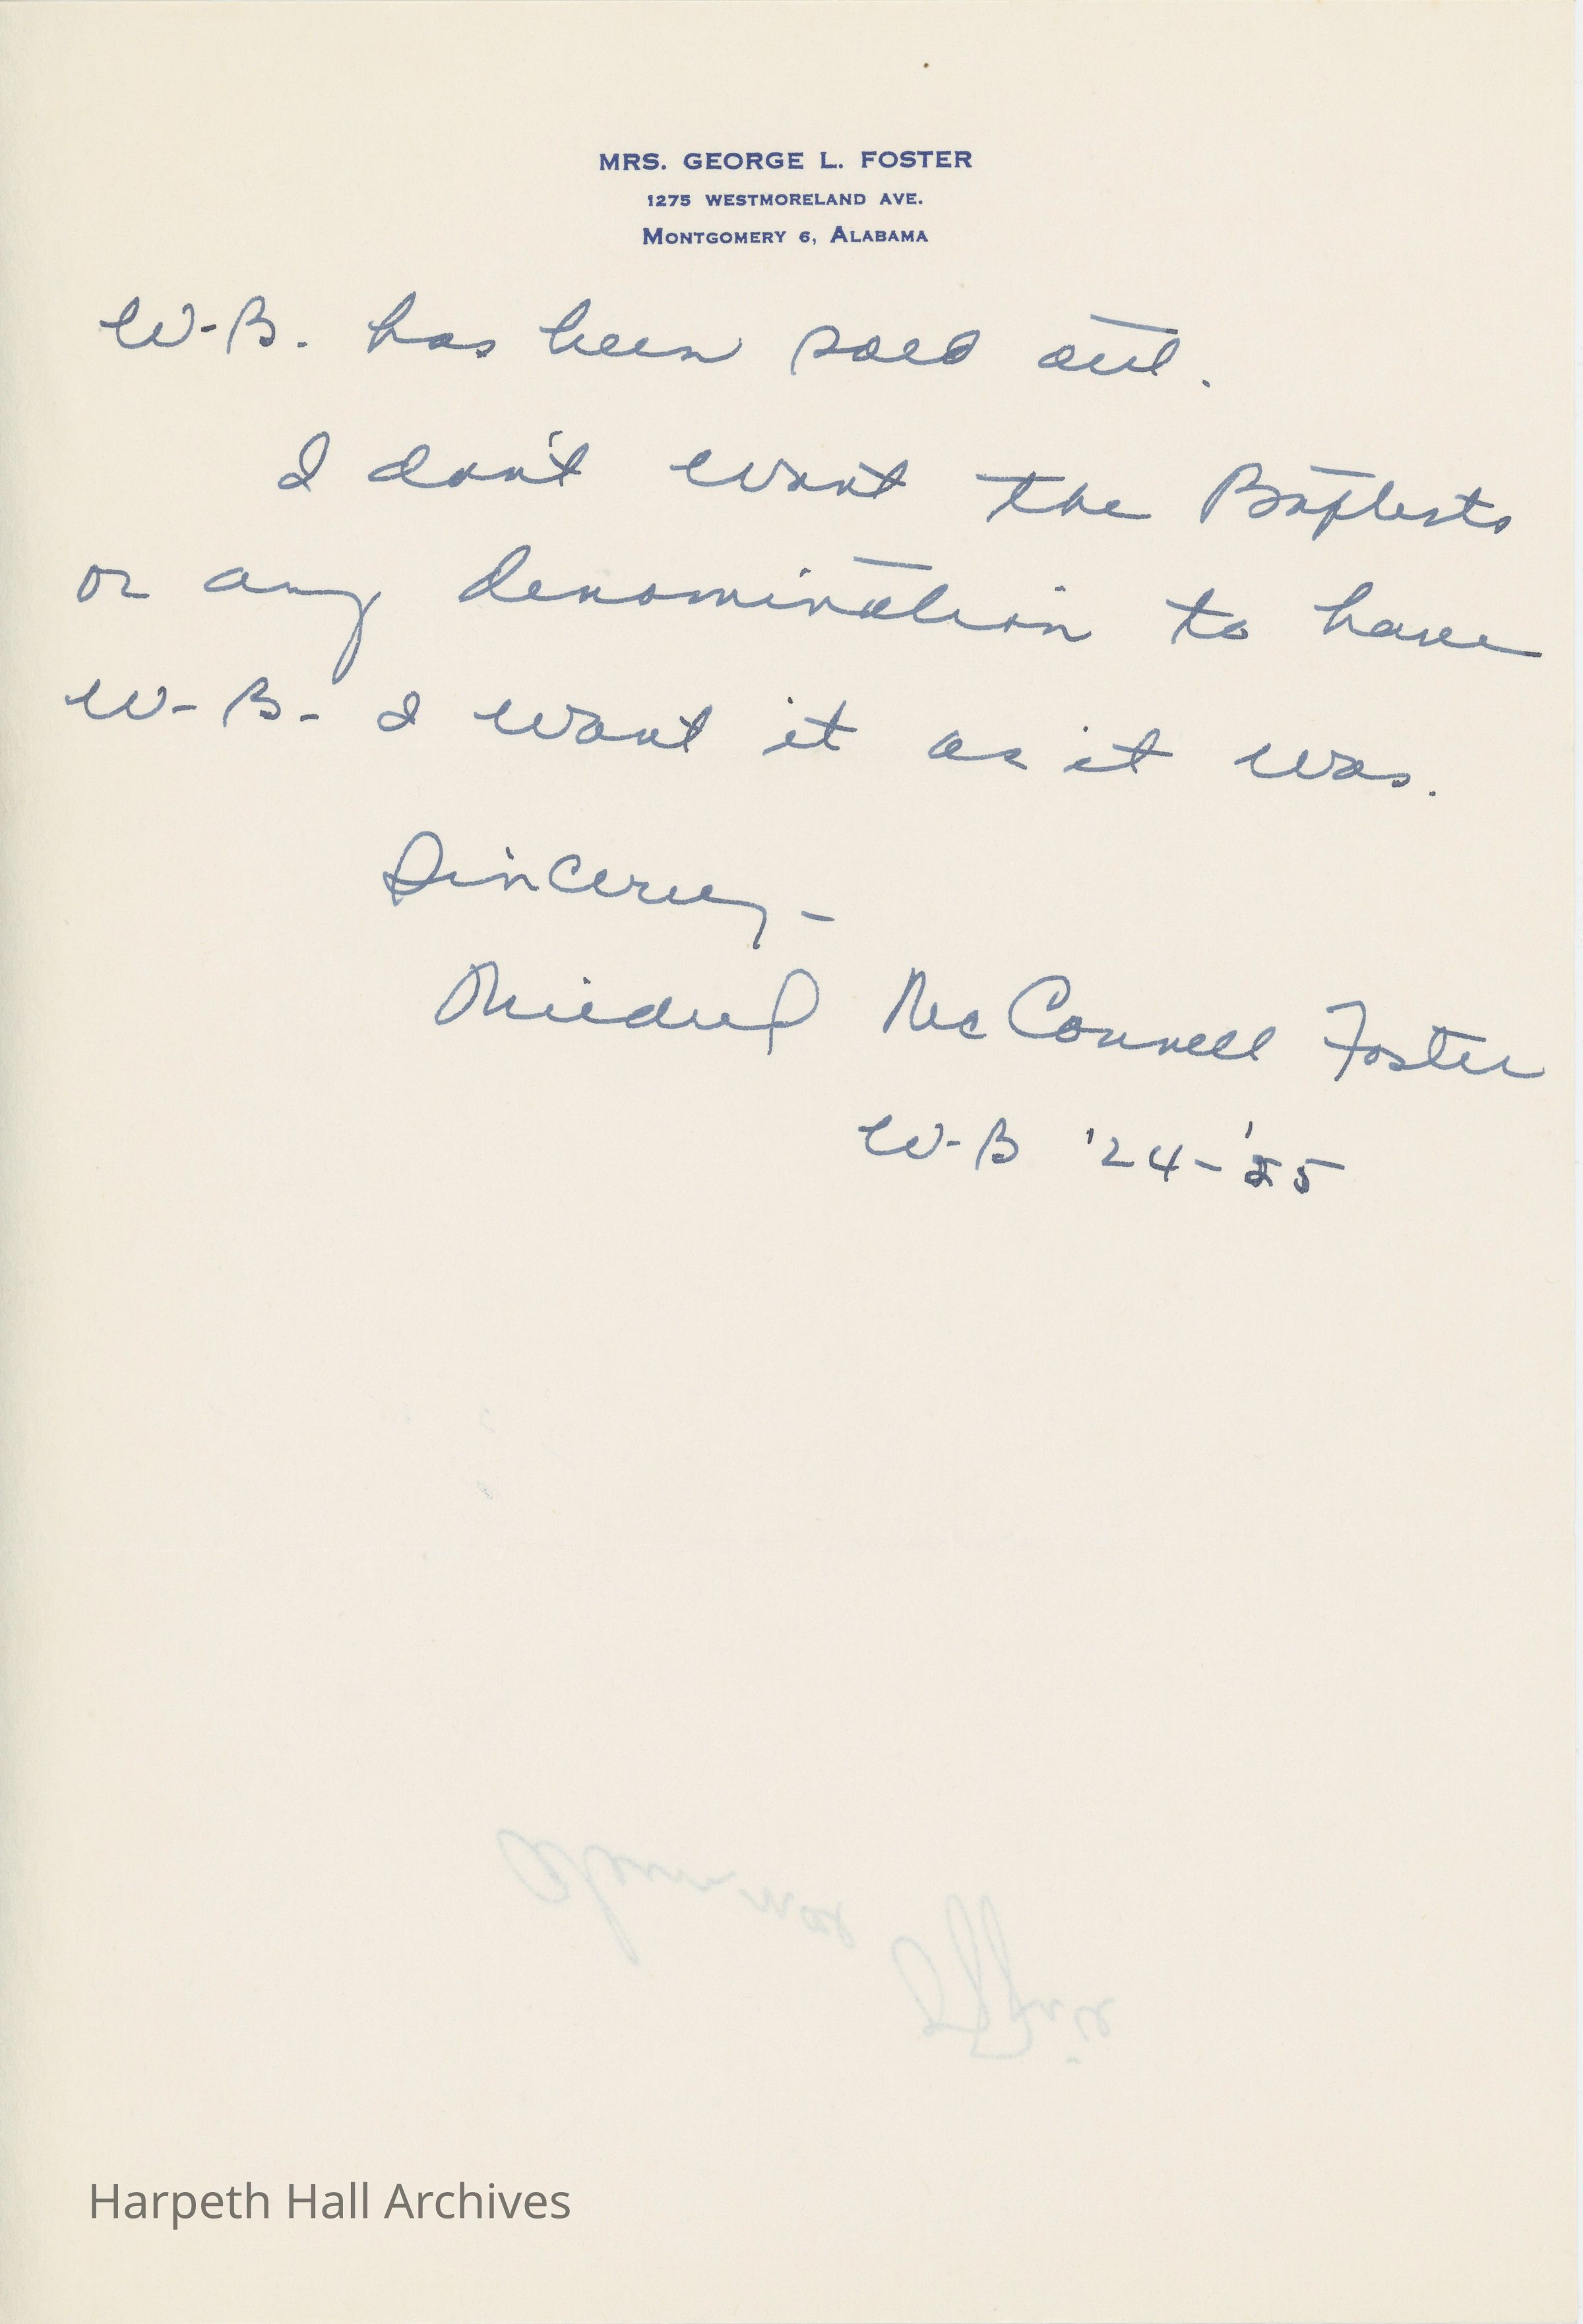 MRS. GEORGE L. FOSTER
1275 WESTMORELAND AVE.
MONTGOMERY 6, ALABAMA
W-B. has been sold out.
I don't want the Baptists
or any denomination to have
W-B- I want it as it was.
Sincerely-
Mildred McConnell Foster
W-B '24-'25
Harpeth Hall Archives